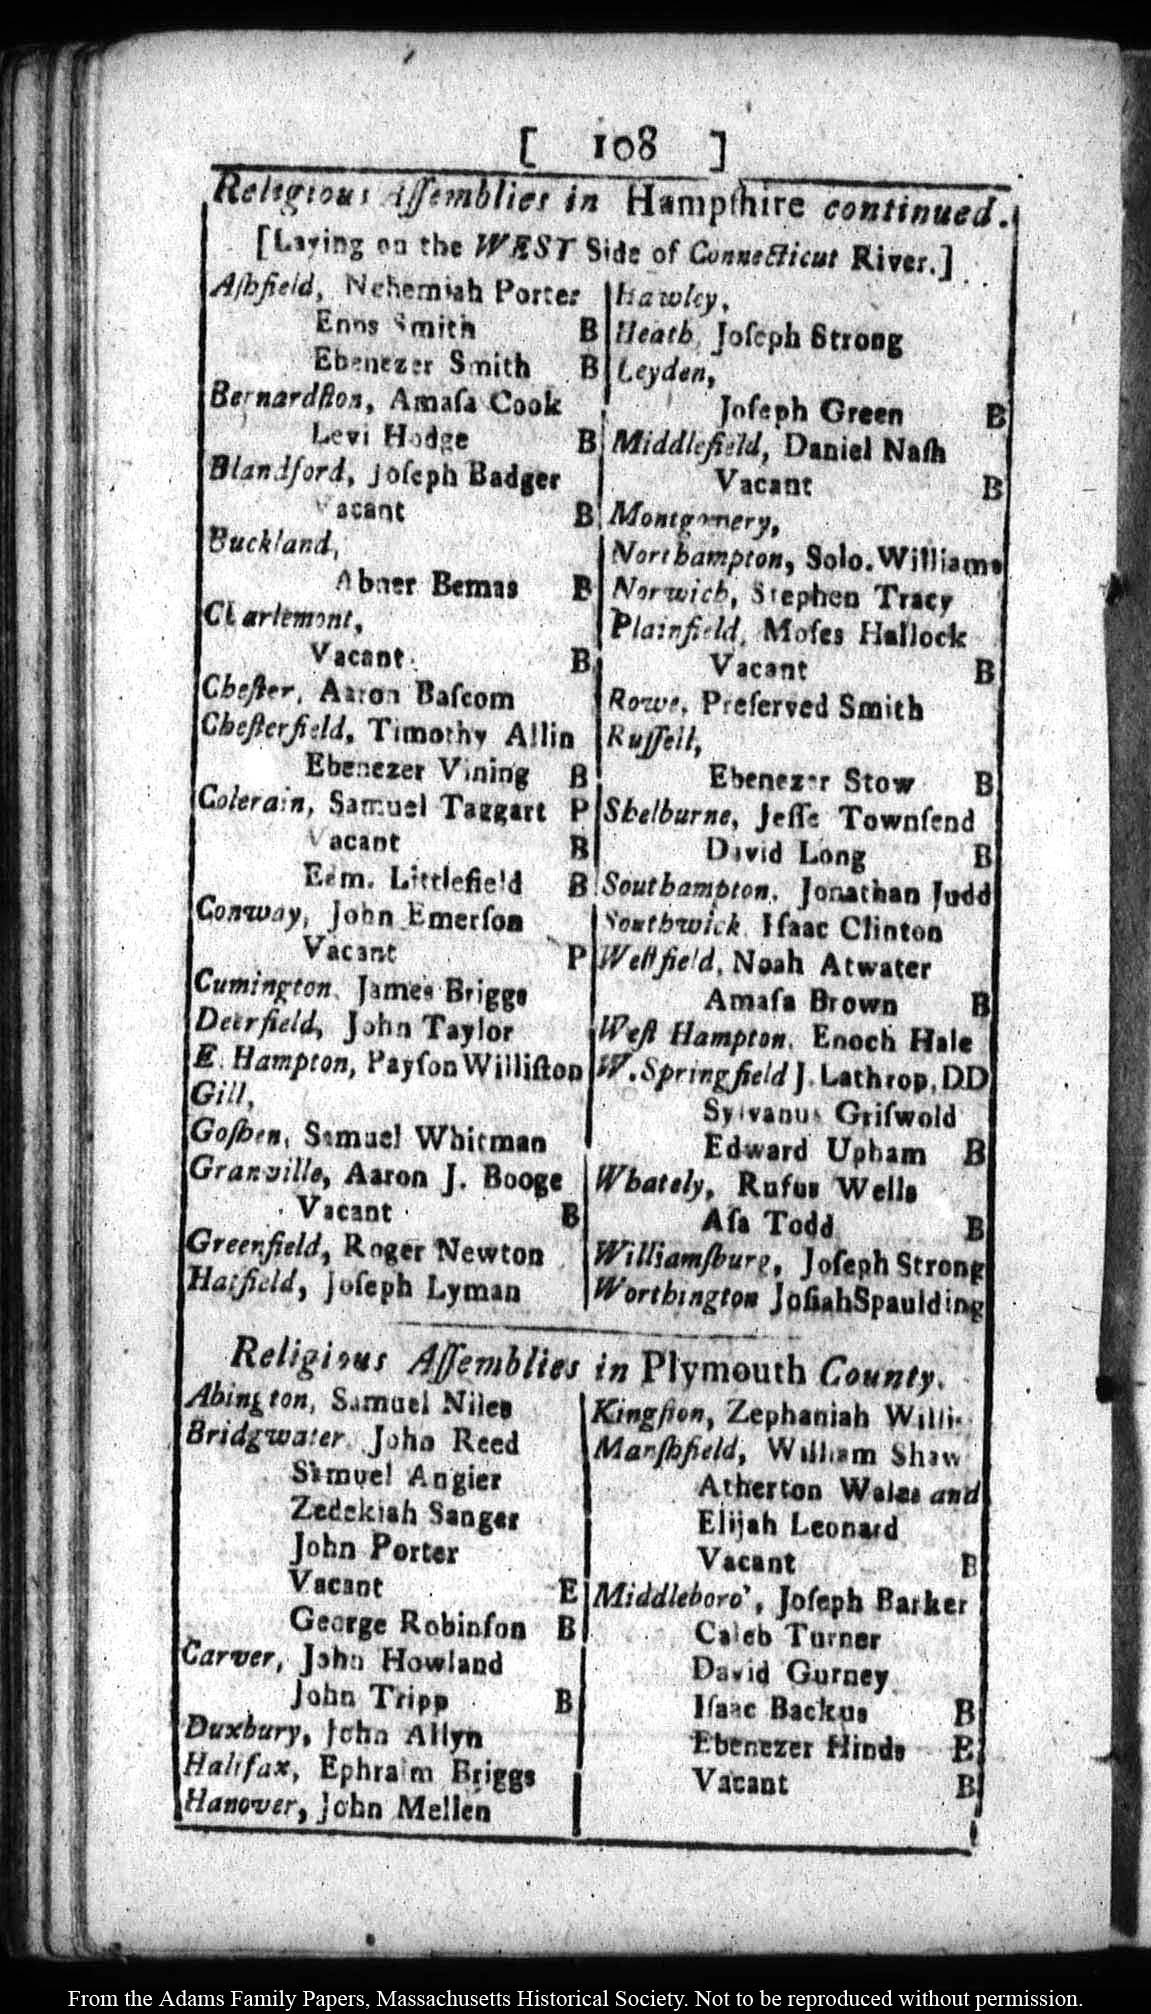 [ 108 ]
Religious Aſſemblies in Hampſhire continued.
[Laying on the WEST Side of Connecticut River.]
Aſhfield, Nehemiah Porter
Enos Smith B
Ebenezer Smith B
Bernardſton, Amaſa Cook
Levi Hodge B
Blandford, Joſeph Badger
Vacant B
Buckland,
Abner Bemas B
Charlemont,
Vacant B
Cheſter, Aaron Baſcom
Cheſterfield, Timothy Allin
Ebenezer Vining B
Colerain, Samuel Taggart P
Vacant B
Edm. Littlefield B
Conway, John Emerſon
Vacant P
Cumington, James Briggs
Deerfield, John Taylor
E. Hampton, Payſon Williſton
Gill,
Goſhen, Samuel Whitman
Granville, Aaron J. Booge
Vacant B
Greenfield, Roger Newton
Hatfield, Joſeph Lyman
Hawley,
Heath, Joſeph Strong
Leyden,
Joſeph Green B
Middlefield, Daniel Naſh
Vacant B
Montgomery,
Northampton, Solo. Williams
Norwich, Stephen Tracy
Plainfield, Moſes Hallock
Vacant B
Rowe, Preſerved Smith
Ruſſell,
Ebenezer Stow B
Shelburne, Jeſſe Townſend
David Long B
Southampton, Jonathan Judd
Southwick, Iſaac Clinton
Weſtfield, Noah Atwater
Amaſa Brown B
Weſt Hampton, Enoch Hale
W. Springfield J. Lathrop, DD
Sylvanus Griſwold
Edward Upham B
Whately, Rufus Wells
Aſa Todd B
Williamſburg, Joſeph Strong
Worthington Joſiah Spaulding
Religious Aſſemblies in Plymouth County.
Abington, Samuel Niles
Bridgwater, John Reed
Samuel Angier
Zedekiah Sanger
John Porter
Vacant E
George Robinſon B
Carver, John Howland
John Tripp B
Duxbury, John Allyn
Halifax, Ephraim Briggs
Hanover, John Mellen
Kingſton, Zephaniah Willi.
Marſhfield, William Shaw
Atherton Wales and
Elijah Leonard
Vacant B
Middleboro', Joſeph Barker
Caleb Turner
David Gurney
Iſaac Backus B
Ebenezer Hinds B
Vacant B
From the Adams Family Papers, Massachusetts Historical Society. Not to be reproduced without permission.